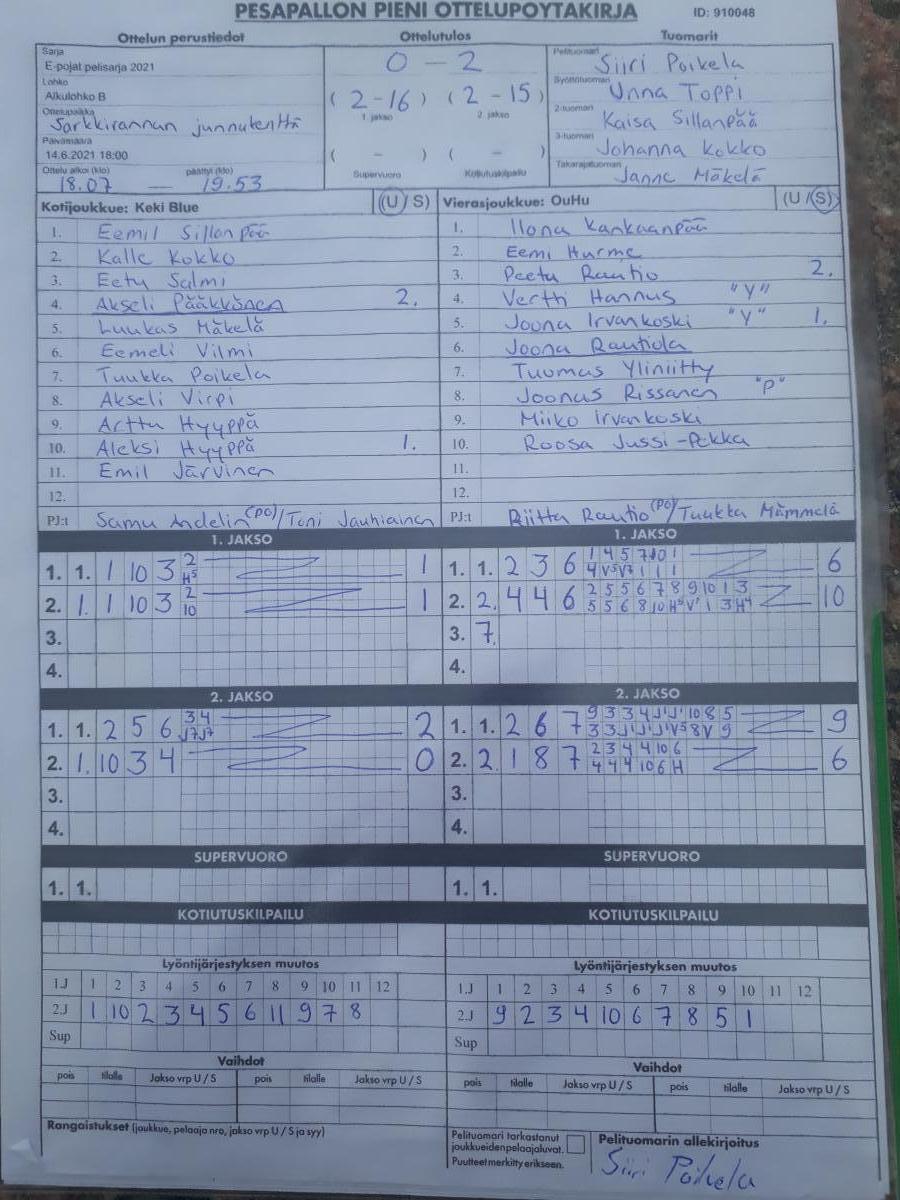 PESÄPALLON PIENI OTTELUPÖYTÄKIRJA
ID: 910048
Ottelun perustiedot
Ottelutulos
Tuomarit
Sarja
E-pojat pelisarja 2021
Lohko
Alkulohko B
Ottelupaikka
Sarkkirannan junnukenttä
Päivämäärä
14.6.2021 18:00
Ottelu alkoi (klo) päättyi (klo)
18.07 — 19.53
0 – 2
( 2-16 ) ( 2 - 15 )
1. jakso 2. jakso
( - ) ( - )
Supervuoro Kotiutuskilpailu
Pelituomari
Siiri Poikela
Syöttötuomari
Unna Toppi
2-tuomari
Kaisa Sillanpää
3-tuomari
Johanna Kokko
Takarajatuomari
Janne Mäkelä
Kotijoukkue: Keki Blue (U / S)
1. Eemil Sillanpää
2. Kalle Kokko
3. Eetu Salmi
4. Akseli Pääkkönen 2.
5. Luukas Mäkelä
6. Eemeli Vilmi
7. Tuukka Poikela
8. Akseli Virpi
9. Arttu Hyyppä
10. Aleksi Hyyppä 1.
11. Emil Järvinen
12.
PJ:t Samu Andelin (PO) / Toni Jauhiainen
Vierasjoukkue: OuHu (U / S)
1. Ilona Kankaanpää
2. Eemi Hurme
3. Peetu Rautio 2.
4. Vertti Hannus "Y"
5. Joona Irvankoski "Y" 1.
6. Joona Rautiola
7. Tuomas Yliniitty
8. Joonas Rissanen "P"
9. Miiko Irvankoski
10. Roosa Jussi-Pekka
11.
12.
PJ:t Riitta Rautio (PO) / Tuukka Mämmelä
1. JAKSO
1. 1. 1 10 3 2 H5 1
2. 1. 1 10 3 2 10 1
3.
4.
1. JAKSO
1. 1. 2 3 6 1 4 5 7 10 1 6
2. 2. 4 4 6 2 5 5 6 7 8 9 10 1 3 10
3. 7.
4.
2. JAKSO
1. 1. 2 5 6 3 4 2
2. 1. 10 3 4 0
3.
4.
2. JAKSO
1. 1. 2 6 7 9
2. 2. 1 8 7 2 3 4 4 10 6 6
4 4 4 10 6 H
3.
4.
SUPERVUORO
1. 1.
SUPERVUORO
1. 1.
KOTIUTUSKILPAILU
KOTIUTUSKILPAILU
Lyöntijärjestyksen muutos
1.J 1 2 3 4 5 6 7 8 9 10 11 12
2.J 1 10 2 3 4 5 6 11 9 7 8
Sup
Lyöntijärjestyksen muutos
1.J 1 2 3 4 5 6 7 8 9 10 11 12
2.J 9 2 3 4 10 6 7 8 5 1
Sup
Vaihdot
pois tilalle Jakso vrp U / S pois tilalle Jakso vrp U / S
Vaihdot
pois tilalle Jakso vrp U / S pois tilalle Jakso vrp U / S
Rangaistukset (joukkue, pelaaja nro, jakso vrp U / S ja syy)
Pelituomari tarkastanut
joukkueiden pelaajaluvat.
Puutteet merkitty erikseen.
Pelituomarin allekirjoitus
Siiri Poikela